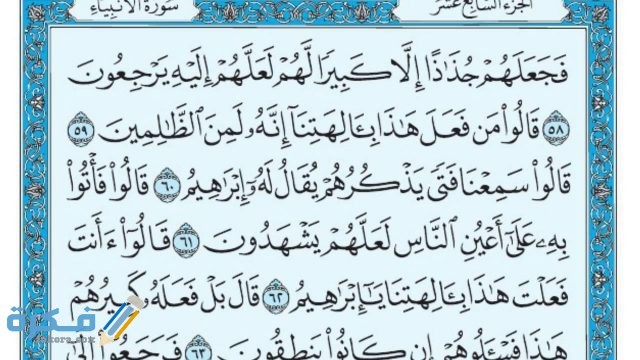 الجزء السابع عشر
سورة الأنبياء
فَجَعَلَهُمْ جُذَٰذًا إِلَّا كَبِيرًا لَّهُمْ لَعَلَّهُمْ إِلَيْهِ يَرْجِعُونَ
٥٨ قَالُوا۟ مَن فَعَلَ هَٰذَا بِـَٔالِهَتِنَآ إِنَّهُۥ لَمِنَ ٱلظَّٰلِمِينَ ٥٩
قَالُوا۟ سَمِعْنَا فَتًى يَذْكُرُهُمْ يُقَالُ لَهُۥٓ إِبْرَٰهِيمُ ٦٠ قَالُوا۟ فَأْتُوا۟
بِهِۦ عَلَىٰٓ أَعْيُنِ ٱلنَّاسِ لَعَلَّهُمْ يَشْهَدُونَ ٦١ قَالُوٓا۟ ءَأَنتَ
فَعَلْتَ هَٰذَا بِـَٔالِهَتِنَا يَٰٓإِبْرَٰهِيمُ ٦٢ قَالَ بَلْ فَعَلَهُۥ كَبِيرُهُمْ
هَٰذَا فَسْـَٔلُوهُمْ إِن كَانُوا۟ يَنطِقُونَ ٦٣ فَرَجَعُوٓا۟ إِلَىٰٓ
فكرة